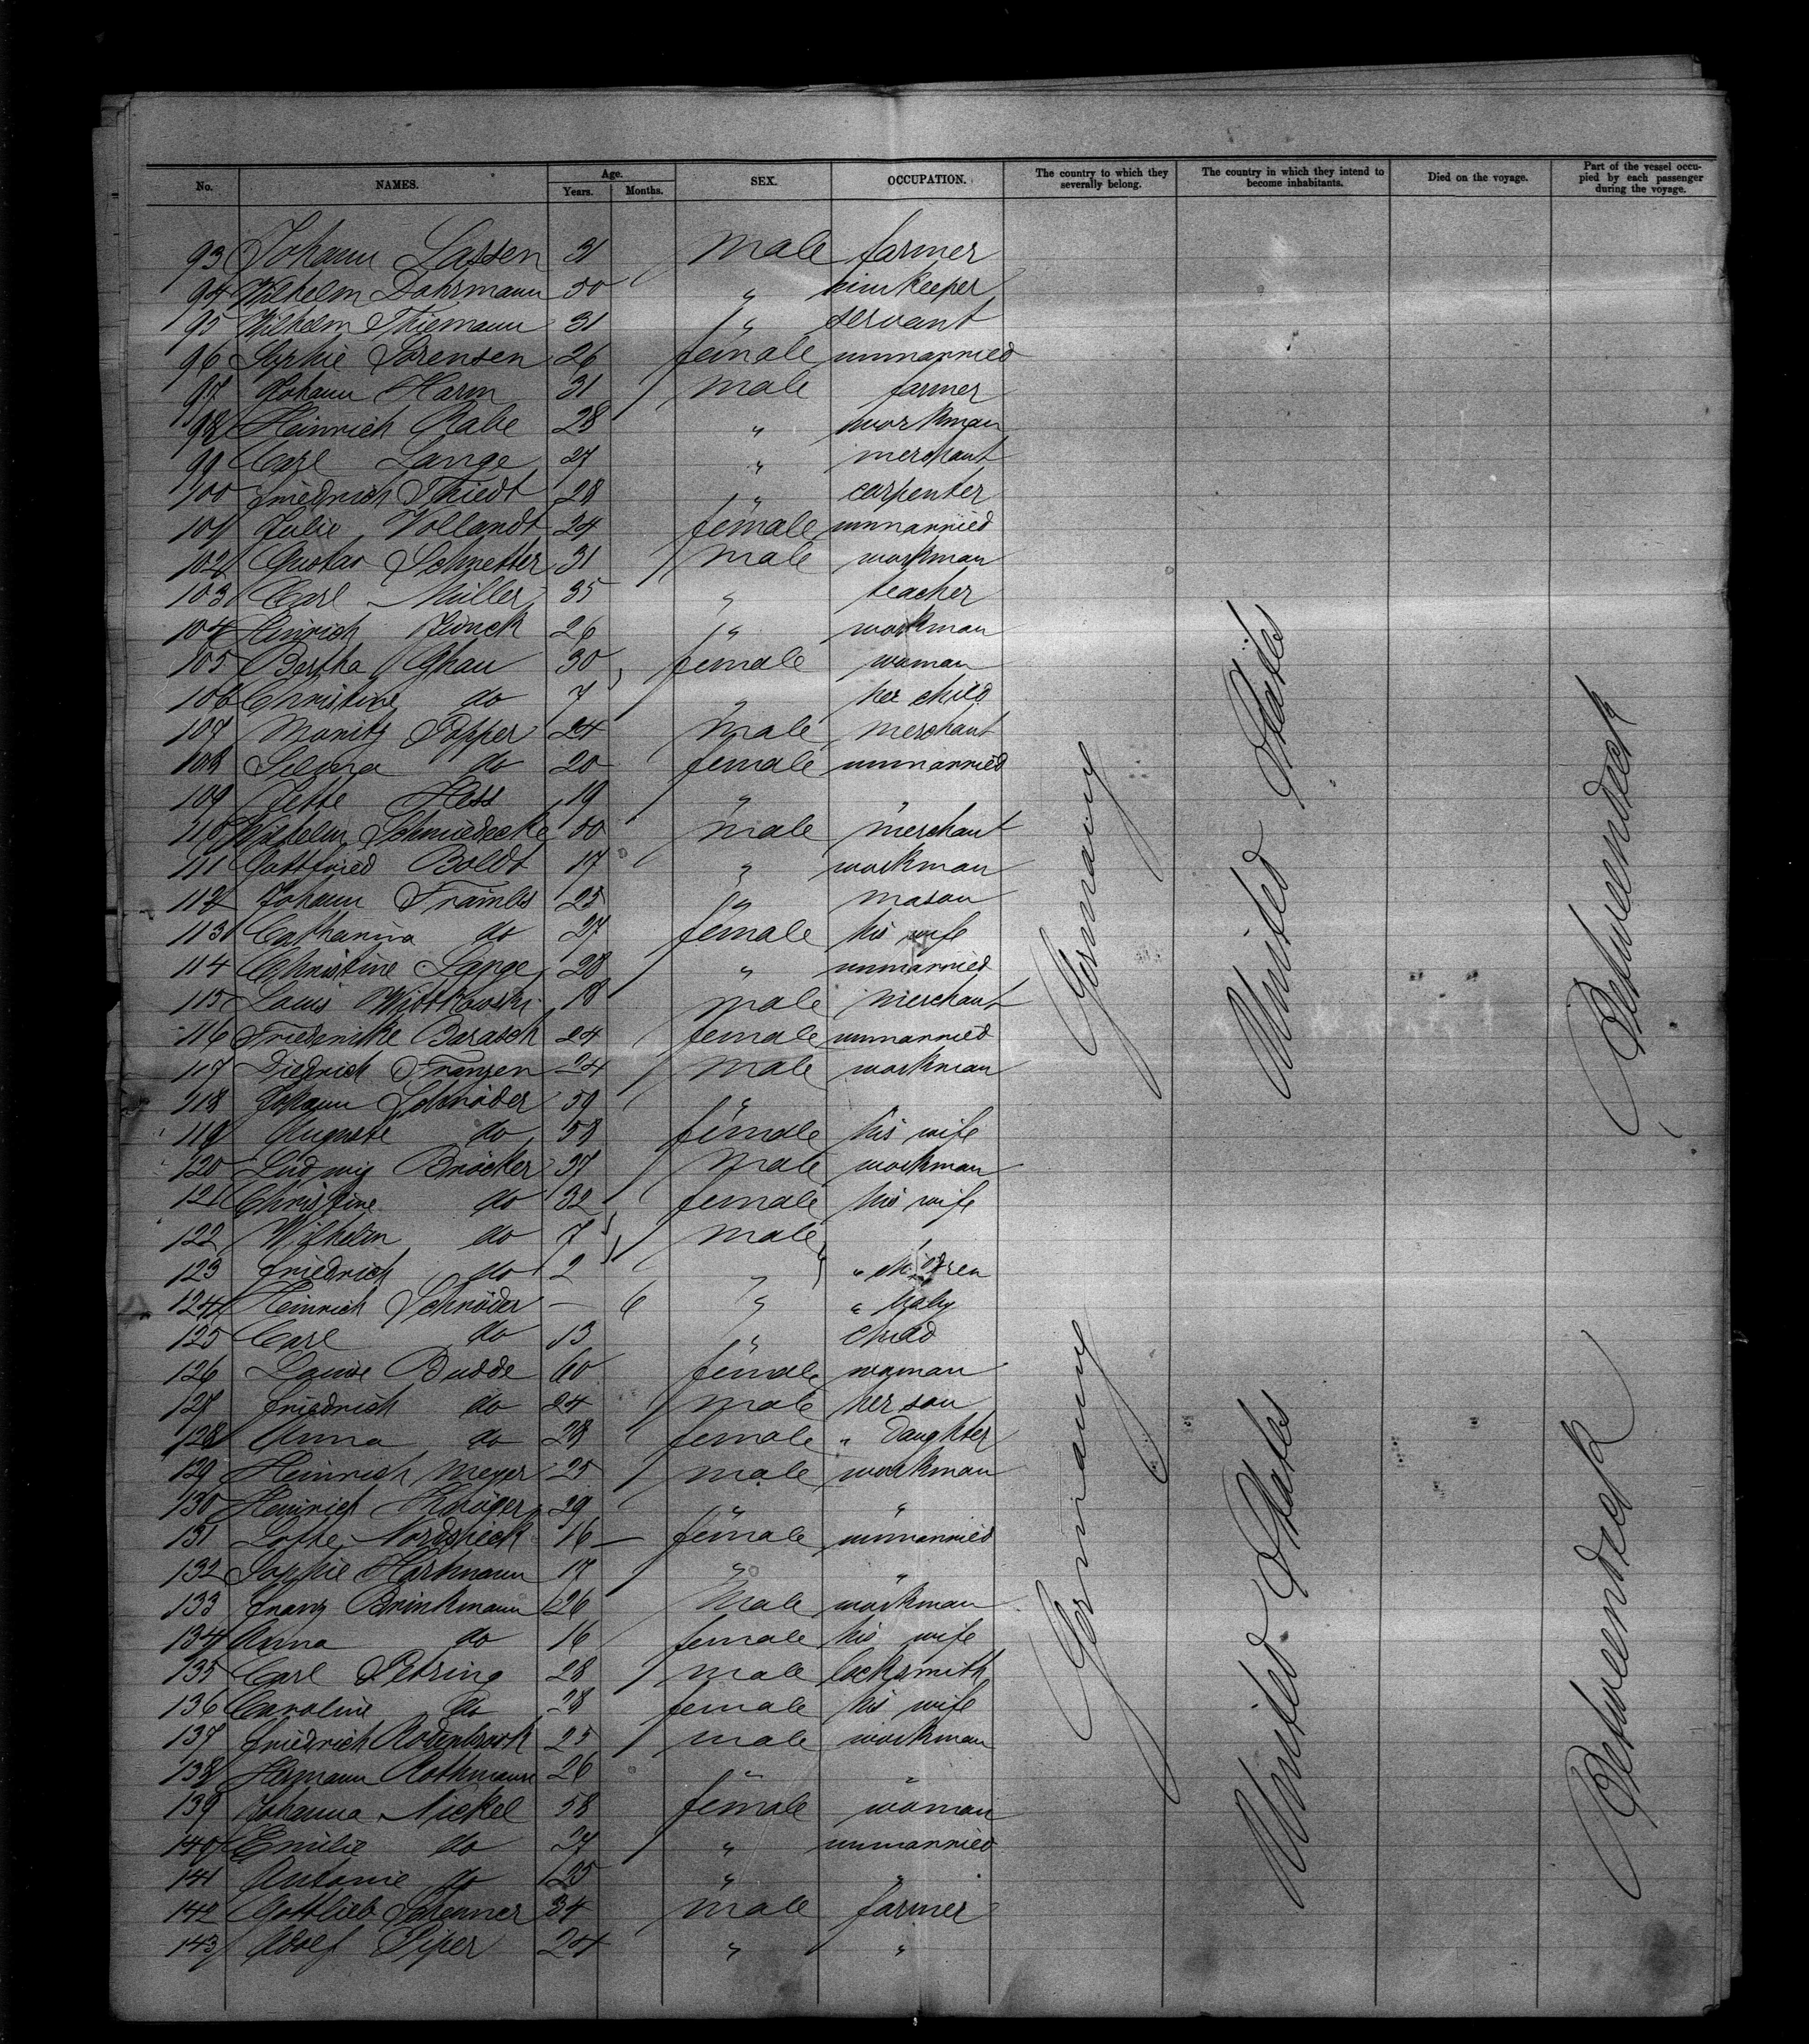 No. NAMES. Age. Years. Months. SEX. OCCUPATION. The country to which they severally belong. The country in which they intend to become inhabitants. Died on the voyage. Part of the vessel occupied by each passenger during the voyage.
93 Johann Lassen 31 male farmer
94 Wilhelm Dohrmann 50 " keeper
95 Wilhelm Thiemann 31 " servant
96 Sophie Sörensen 26 female unmarried
97 Johann Harm 31 male farmer
98 Heinrich Rabe 28 " workman
99 Carl Lange 27 " merchant
100 Friedrich Thiedt 28 " carpenter
101 Julie Vollandt 24 female unmarried
102 Gustav Schnetter 31 male workman
103 Carl Müller 35 " teacher
104 Hinrich Junck 26 " workman
105 Bertha Ghau 30 female woman
106 Christine do 7 " her child
107 Moritz Popper 24 male merchant
108 do 20 female unmarried
109 Jette Hess 19 " "
110 Wilhelm Schmiedecke 50 male merchant
111 Gottfried Boldt 17 " workman
112 Johann 25 " mason
113 Catharina do 27 female his wife
114 Christine Lange 28 " unmarried
115 Louis Wittkowski 18 male merchant
116 Friederike Barasch 24 female unmarried
117 Diedrich Franzen 24 male workman
118 Johann Schröder 59 " "
119 Auguste do 58 female his wife
120 Ludwig Bröcker 37 male workman
121 Christine do 32 female his wife
122 Wilhelm do 7 male
123 Friedrich do 2 " " children
124 Heinrich Schröder — 6 " " baby
125 Carl do 13 " child
126 Louise Budde 60 female woman
127 Friedrich do 24 male her son
128 Anna do 28 female " daughter
129 Heinrich Meyer 25 male workman
130 Heinrich Kröger 29 " "
131 Lothe Nordsieck 16 — female unmarried
132 Sophie Hartmann 17 " "
133 Franz Brinkmann 26 male workman
134 Anna do 16 female his wife
135 Carl Petring 28 male locksmith
136 Caroline do 28 female his wife
137 Friedrich Rodenbrock 25 male workman
138 Hermann Rothmann 26 " "
139 Johanna Nickel 58 female woman
140 Emilie do 27 " unmarried
141 Antonie do 25 " "
142 Gottlieb 34 male farmer
143 Adolf Piper 24 " "
Germany
United States
Betweendeck
Germany
United States
Betweendeck